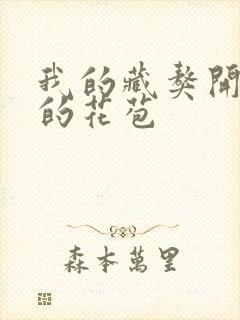 我的藏獒開
的花苞
森本萬里